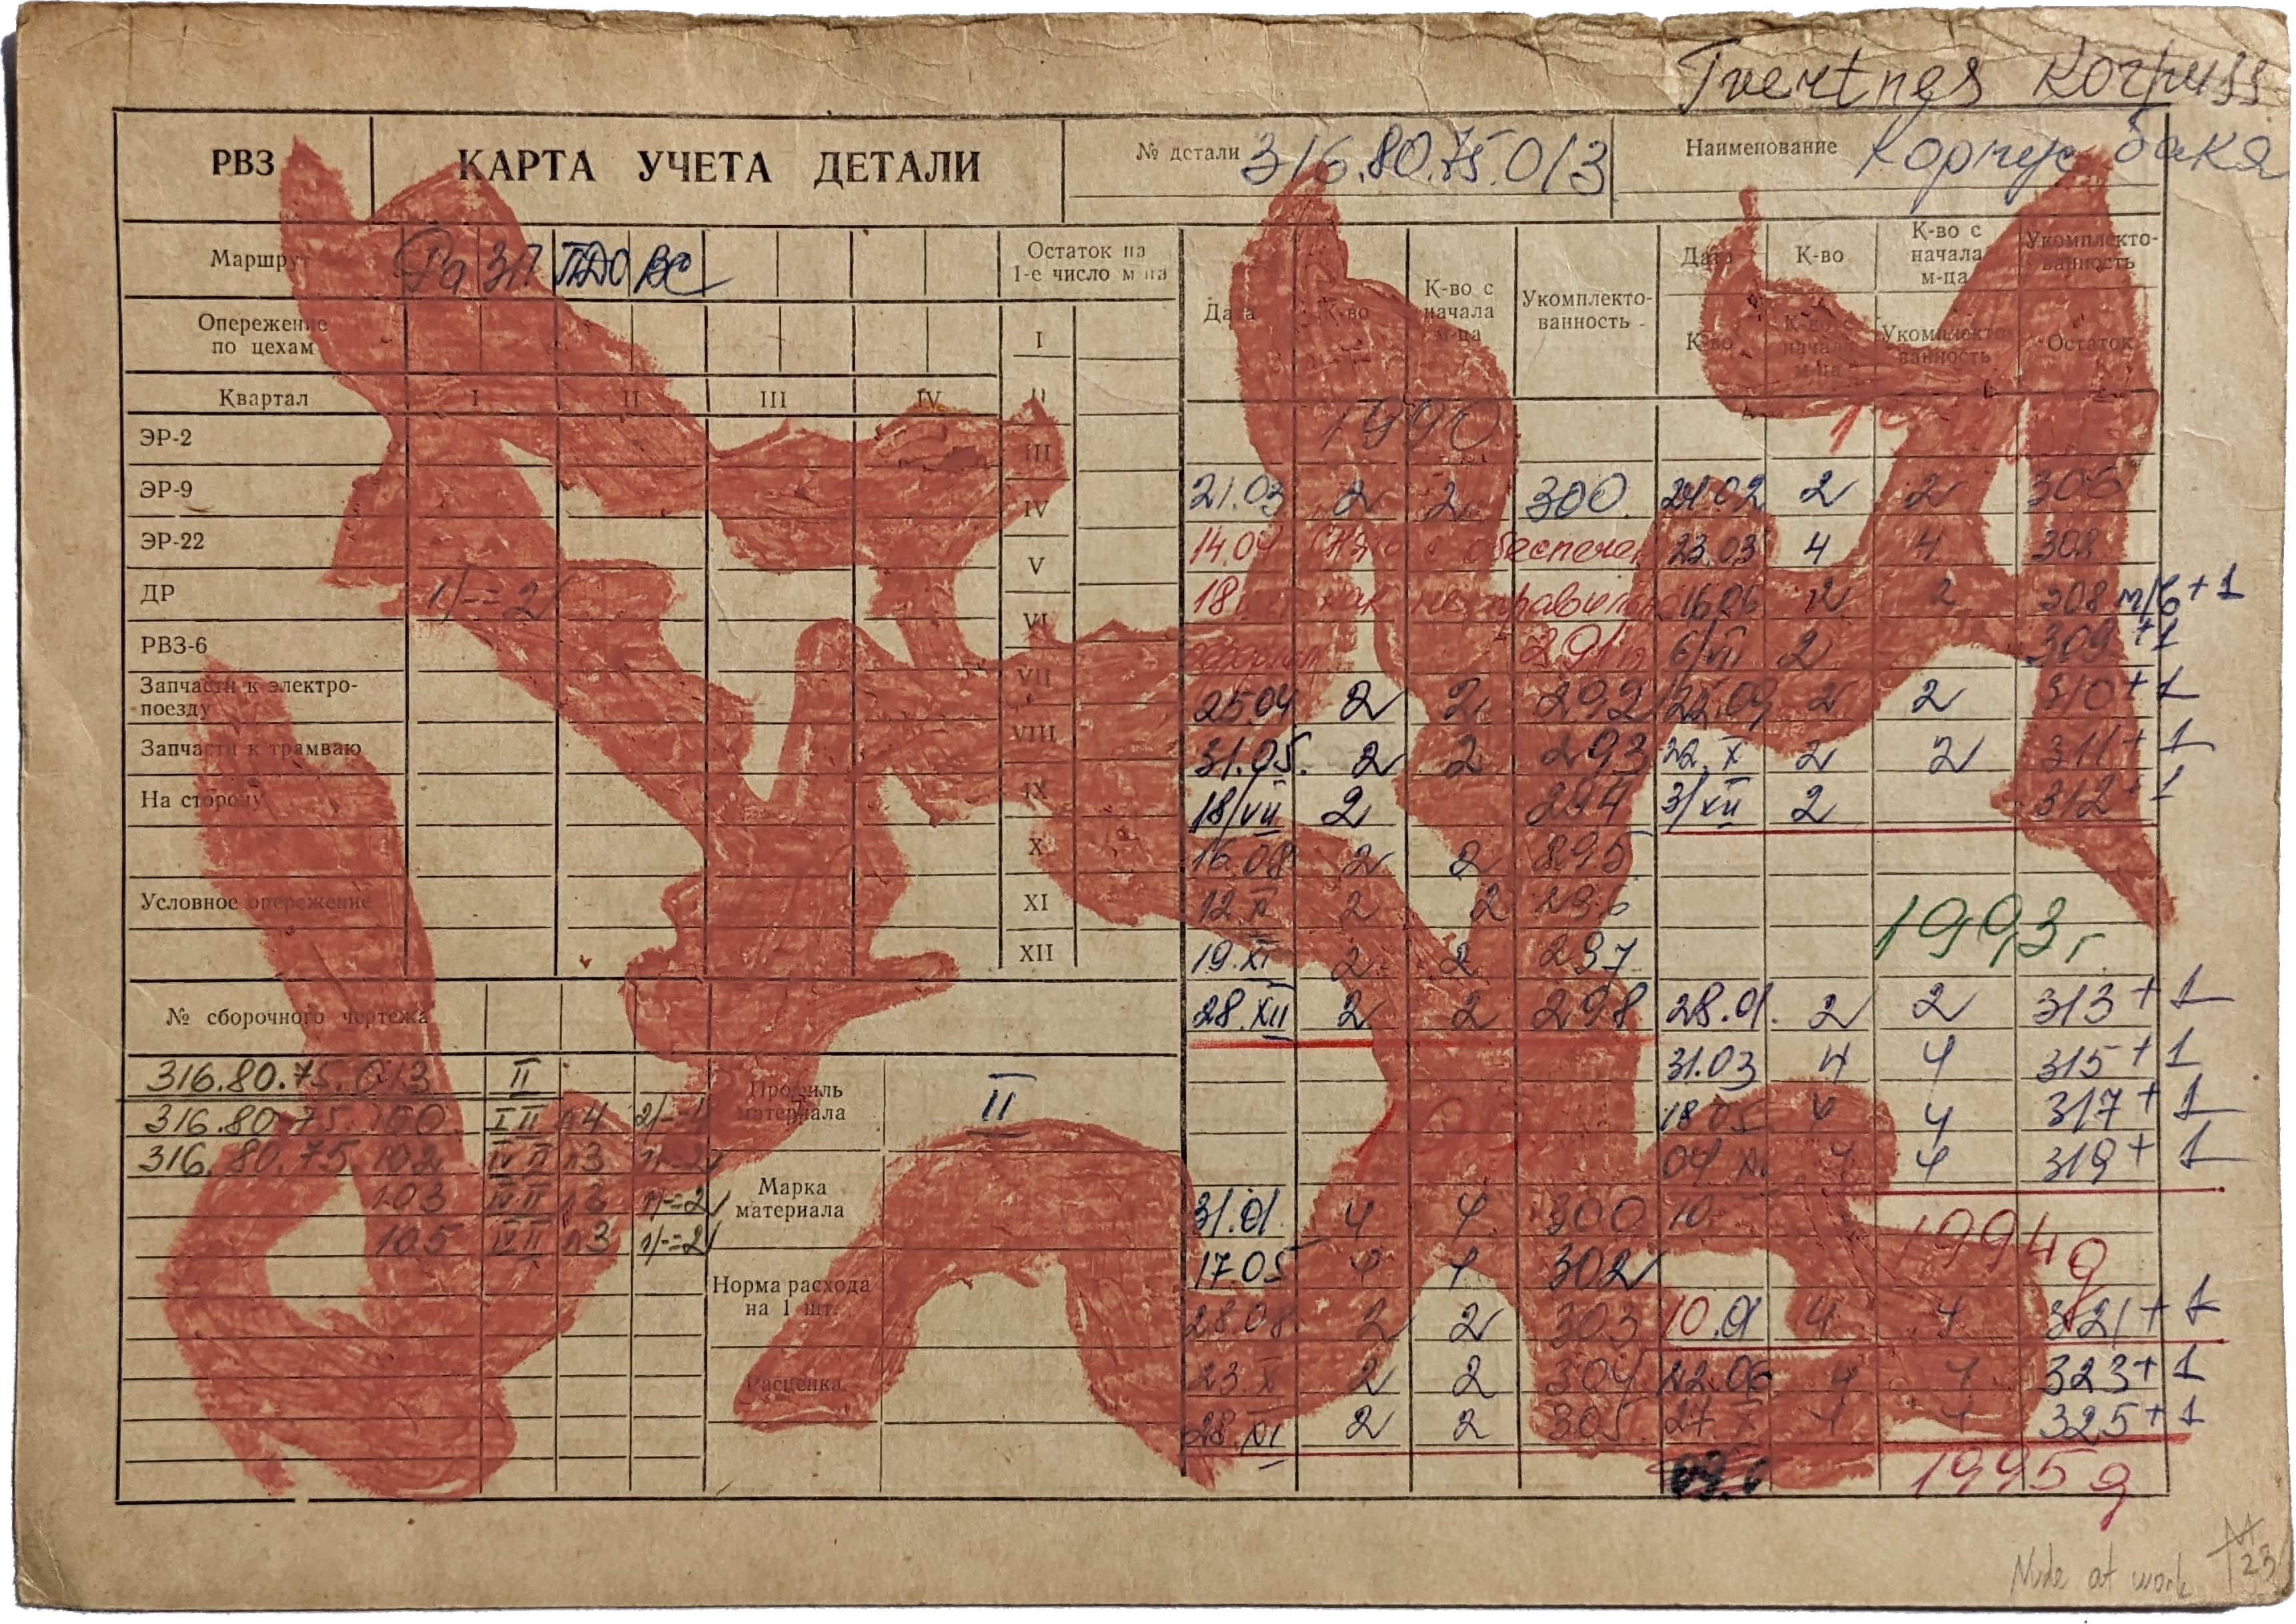 Tvertnes Korpuss
РВЗ
КАРТА УЧЕТА ДЕТАЛИ
№ детали 316.80.75.013
Наименование Корпус бака
Маршрут ПДО ВС
Остаток на 1-е число м-ца
Дата К-во К-во с начала м-ца Укомплекто-ванность
Дата К-во К-во с начала м-ца Укомплекто-ванность
К-во К-во с начала м-ца Укомплекто-ванность Остаток
Опережение по цехам
Квартал I II III IV
I
II
III
IV
V
VI
VII
VIII
IX
X
XI
XII
ЭР-2
ЭР-9
ЭР-22
ДР 1/--2
РВЗ-6
Запчасти к электро-
поезду
Запчасти к трамваю
На сторону
Условное опережение
№ сборочного чертежа
316.80.75.013 II
316.80.75.100 III
316.80.75.102 IV II п3
103 п3 1/--2
105 п3 1/--2
Профиль материала II
Марка материала
Норма расхода на 1 шт.
Расценка
1990
21.03 2 2 300.
14.04
18
291
25.04 2 2 292
31.05. 2 2 293
18/VII 2 294
16.08 2 2 295
12.X 2 2 296
19.XI 2 2 297
28.XII 2 2 298
31.01. 4 4 300
17.05 4 4 302
28.08 2 2 303
23.X 2 2 304
28.XI 2 2 305
21.02 2 2 306
23.03 4 4 308
16.06 2 2 308 +1
6/VII 2 309 +1
25.09 2 2 310 +1
22.X 2 2 311 +1
31/XII 2 312 +1
1993 г
28.01. 2 2 313 +1
31.03 4 4 315 +1
18.05 4 4 317 +1
04.XI 4 4 319 +1
10.
1994 g
10.01 4 4 321 +1
22.06 4 4 323 +1
27.X 4 4 325 +1
1995 g
Nude at work
23